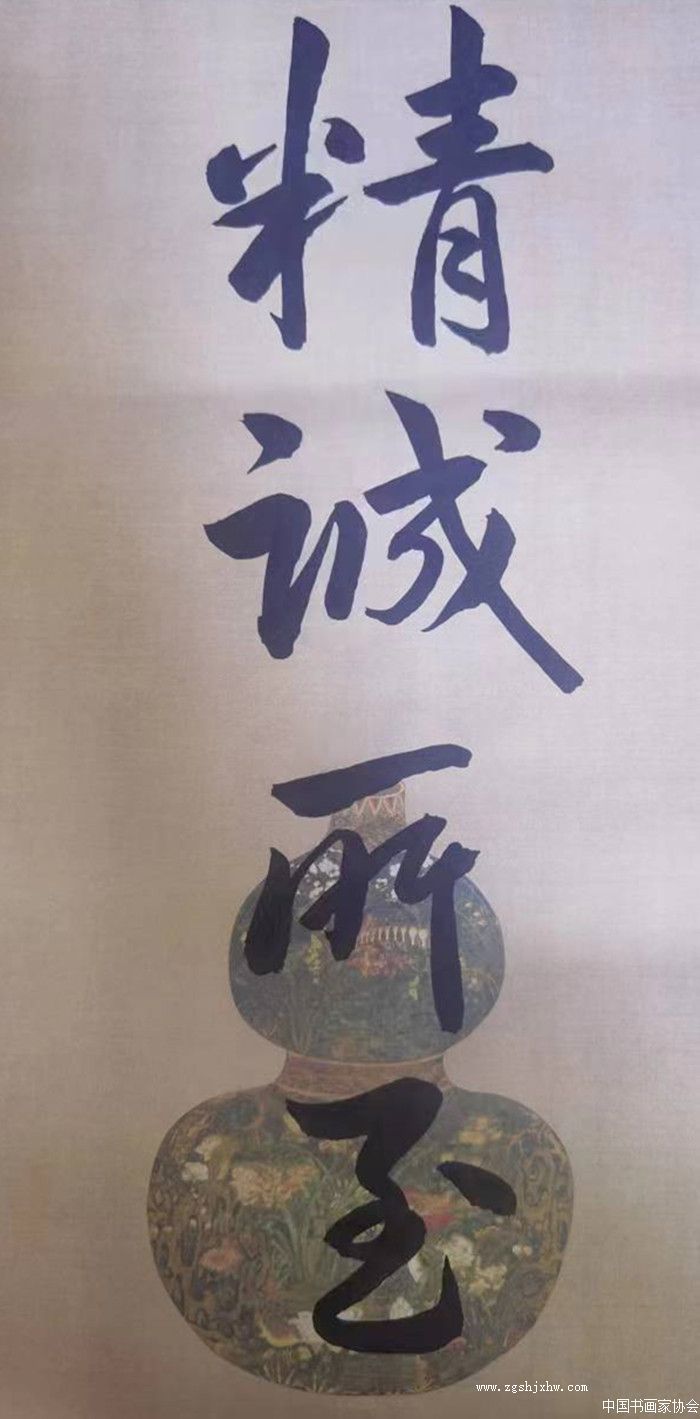 精诚所至
www.zgshjxhw.com
中国书画家协会